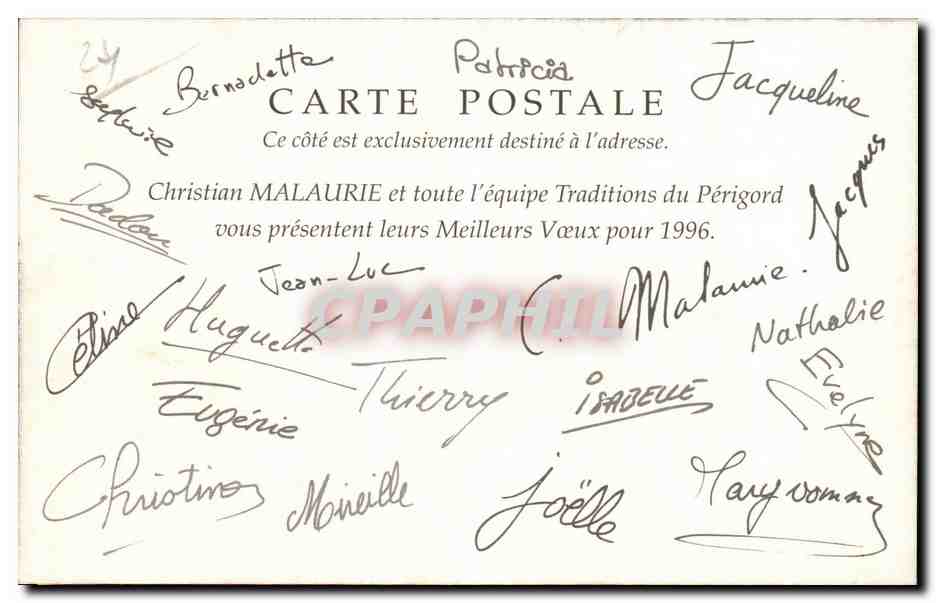 24
Bernadette
Patricia
Jacqueline
CARTE POSTALE
Ce côté est exclusivement destiné à l'adresse.
Dadou
Jacques
Christian MALAURIE et toute l'équipe Traditions du Périgord
vous présentent leurs Meilleurs Vœux pour 1996.
Jean-Luc
C. Malaurie.
CPAPHIL
Céline
Huguette
Nathalie
Thierry
Evelyne
Eugénie
ISABELLE
Christine
Mireille
Joëlle
Maryvonne